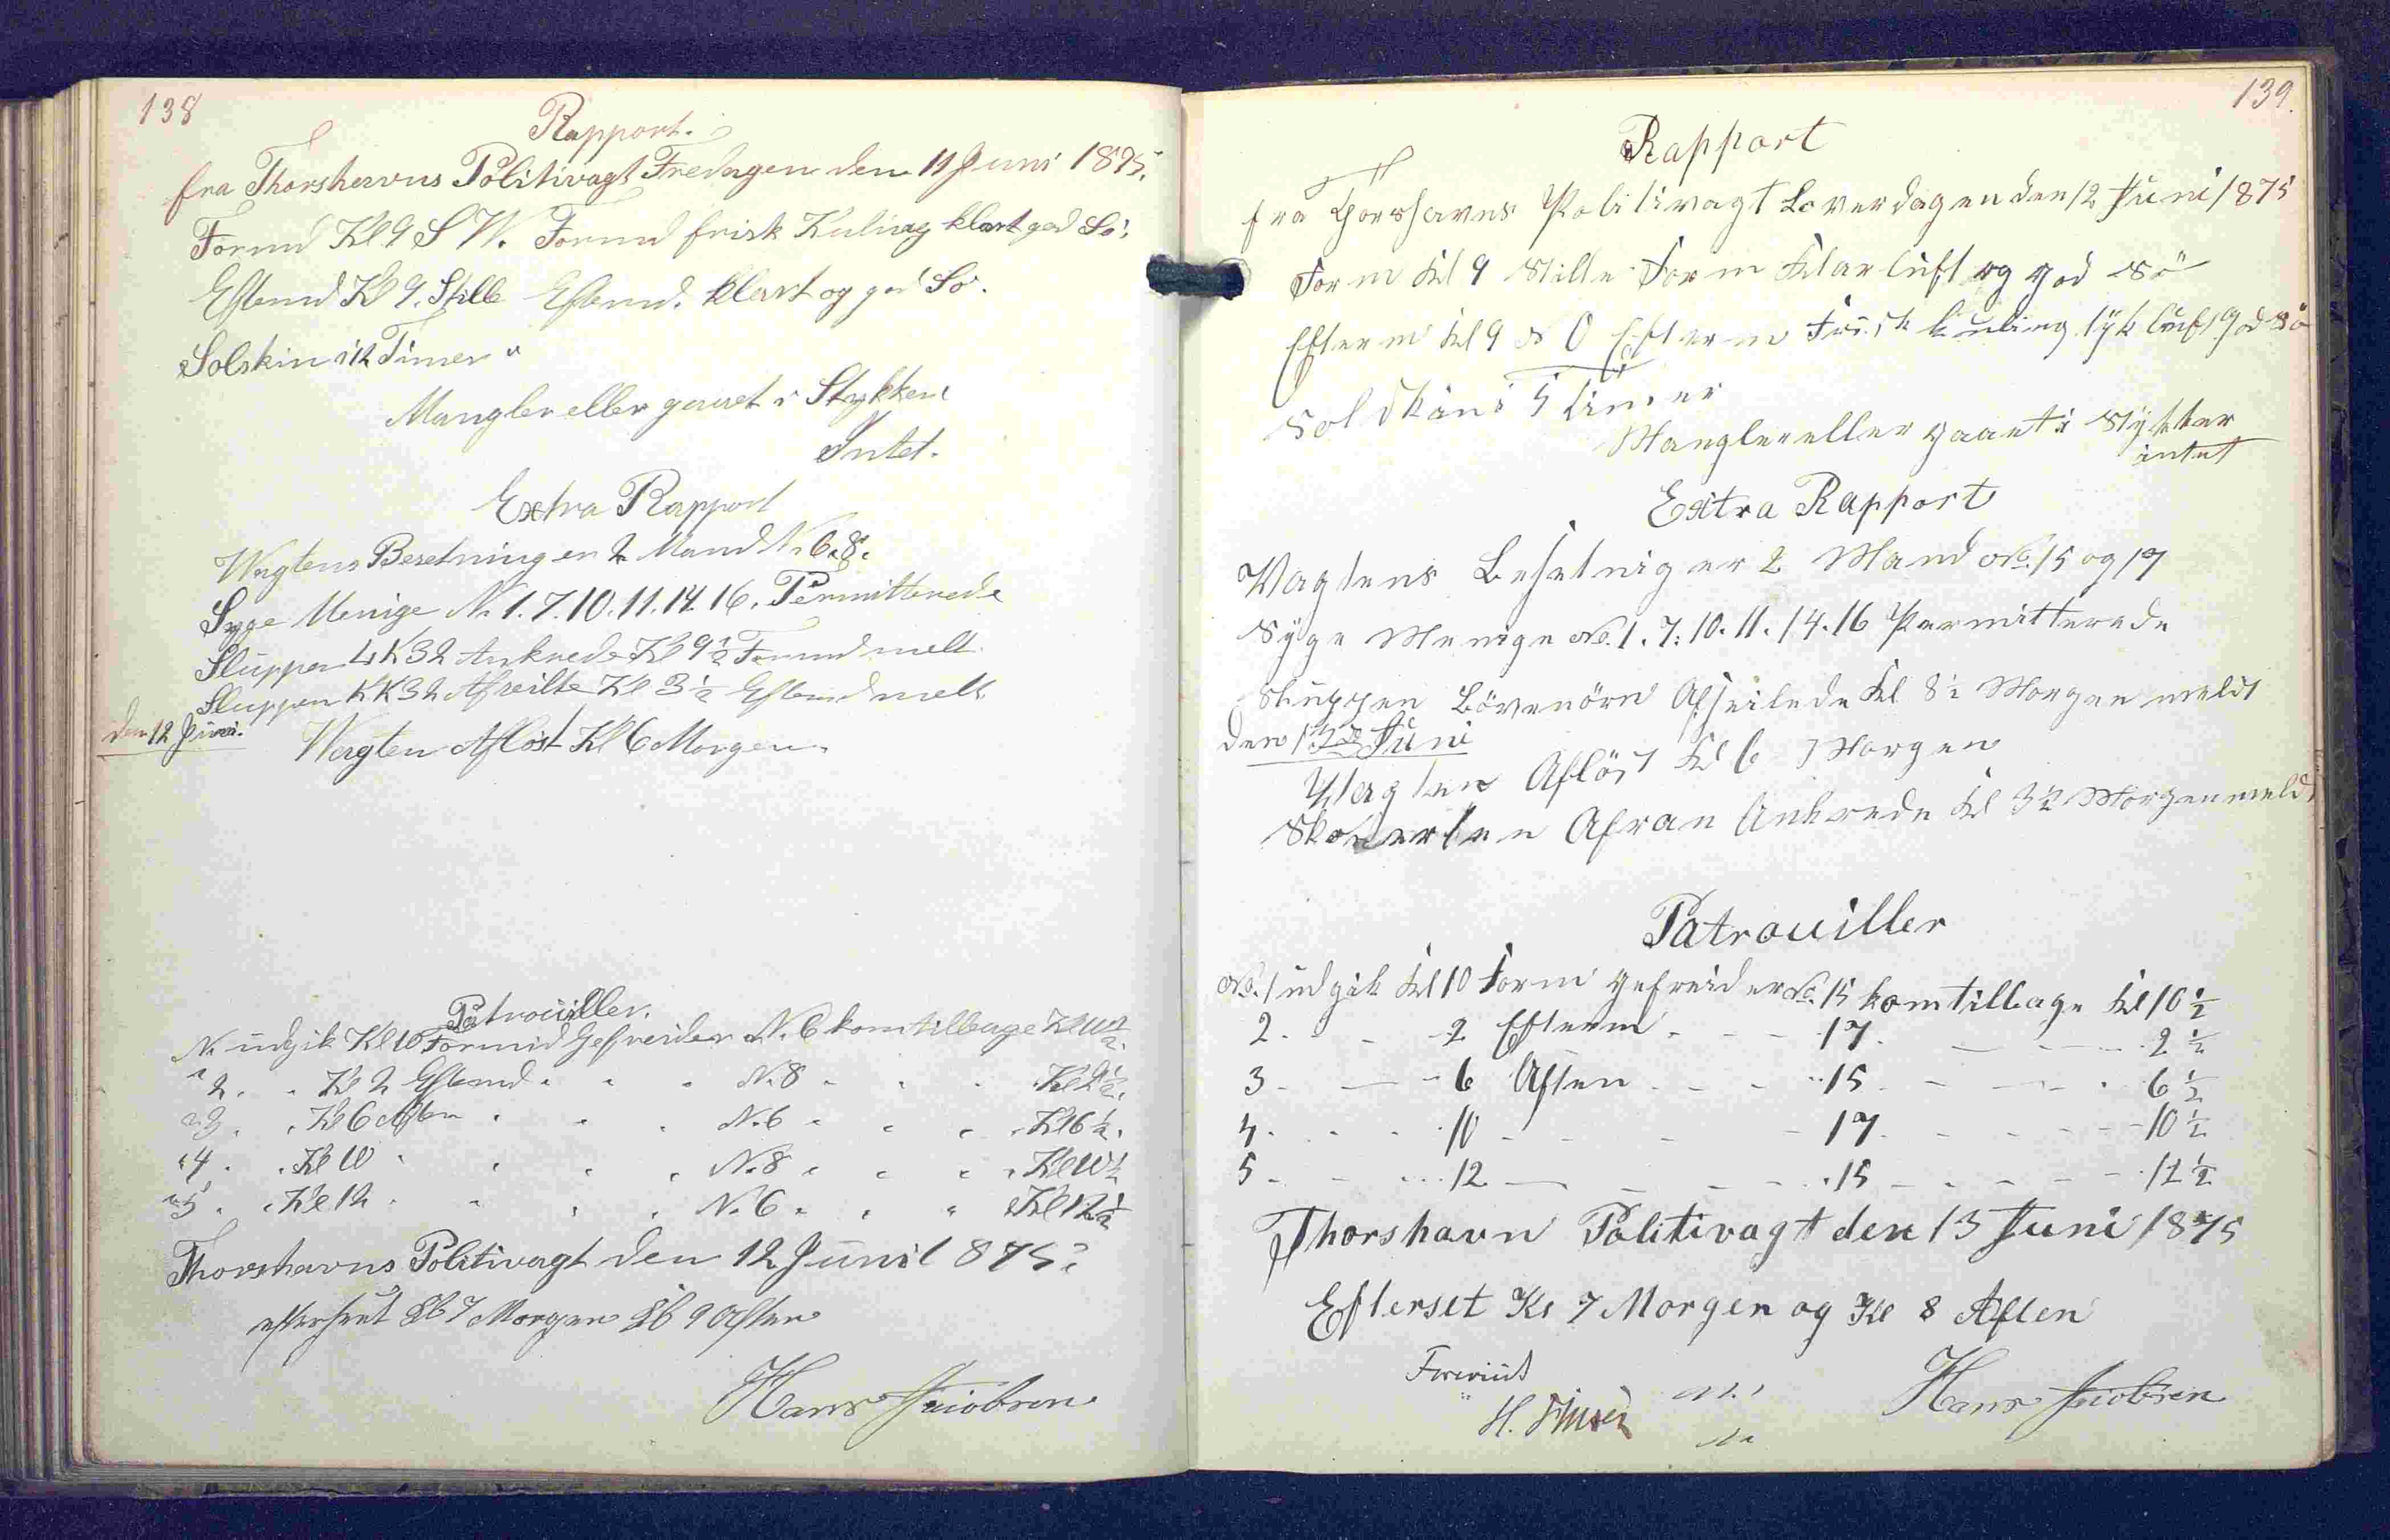 138
Rapport.
fra Thorshavns Politivagt Fredagen den 11 Juni 1875.
Formd Kl 9 S W. Formd frisk Kuling klart god Sö.
Eftemd Kl 9. Stille Eftemd. klart og god Sö.
Solskin i 12 Timer
Mangler eller gaaet i Stykker
Intet.
Extra Rapport
Vagtens Besetning er 2 Mand N. 6. 8.
Syge Menige N. 1. 7. 10. 11. 14. 16. Permitterede
Sluppen LK32 Ankrede Kl 9½ Formd melt.
Sluppen LK32 Afseilte Kl 3½ Eftemd melt.
den 12 Juni.
Vagten Aflöst Kl 6 Morgen.
Patrouiller.
N. udgik Kl 10 Formid Gefreider N. 6 kom tilbage Kl 10½.
" 2. " Kl 2 Eftemd. " " N. 8 " " " Kl 2½.
" 3. " Kl 6 Aften " " " N. 6 " " " Kl 6½.
" 4. " Kl 10 " " " " N. 8 " " " Kl 10½
" 5. " Kl 12 " " " " N. 6 " " " Kl 12½
Thorshavns Politivagt den 12 Juni 1875.
efterseet Kl 7 Morgen Kl 9 Aften
Hans Jacobsen
139.
Rapport
fra Thorshavns Politivagt Löverdagen den 12 Juni 1875
Form Kl 9 Stille Form Klar luft og god Sö
Efterm Kl 9 N O Efterm Frisk kuling tyk luft god Sö
Solskin i 5 timer
Mangler eller gaaet i Stykker
intet
Extra Rapport
Vagtens Besetnig er 2 Mand No. 15 og 17
Syge Menige No. 1. 7. 10. 11. 14. 16 Permitterede
Sluppen Lövenörn Afseilede Kl 8½ Morgen meldt
den 13 Juni
Vagten Aflöst Kl 6 Morgen
Skonerten Afran Ankrede Kl 3½ Morgen meldt
Patrouiller
No. 1 udgik Kl 10 Form gefreider No. 15 kom tilbage Kl 10½
2 - - - 2 Efterm - - - 17 - - - 2½
3 - - - 6 Aften - - - 15 - - - 6½
4 - - - 10 - - - 17 - - - 10½
5 - - - 12 - - - 15 - - - 12½
Thorshavn Politivagt den 13 Juni 1875
Efterset Kl 7 Morgen og Kl 8 Aften
Hans Jacobsen